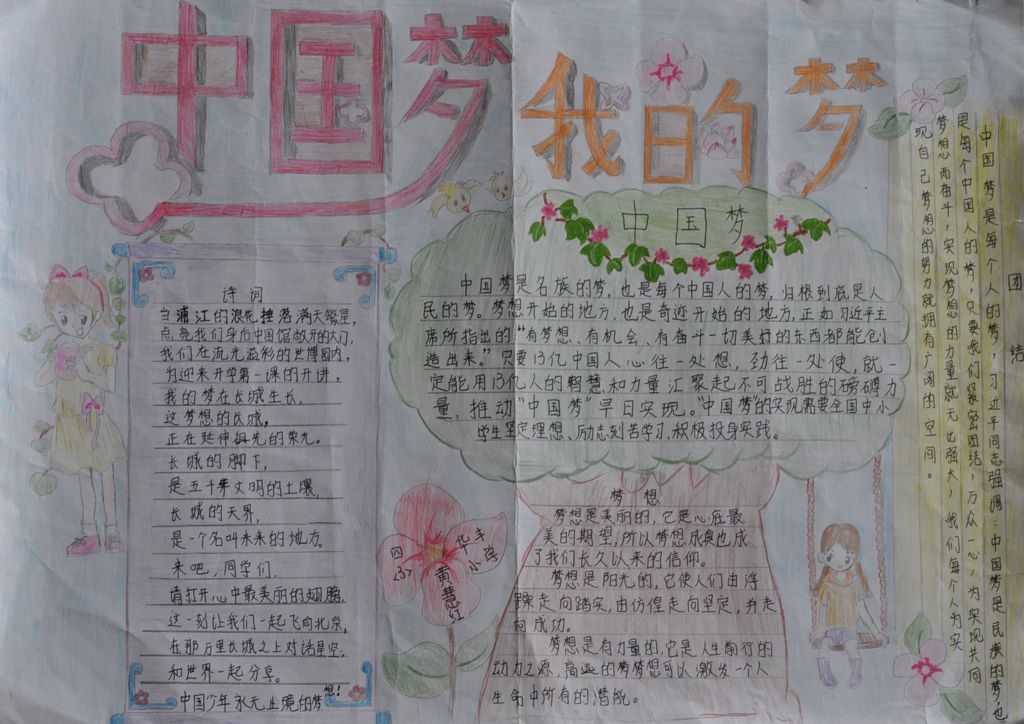 中国梦
我的梦
诗词
当浦江的浪花挂落满天繁星，
点亮我们身后中国馆敞开的大门，
我们在流光溢彩的世博园内，
为迎来开学第一课的开讲。
我的梦在长城生长，
这梦想的长城，
正在延伸祖先的荣光。
长城的脚下，
是五千年文明的土壤，
长城的天界，
是一个名叫未来的地方。
来吧，同学们，
请打开心中最美丽的翅膀，
这一刻让我们一起飞向北京，
在那万里长城之上对话星空，
和世界一起分享。
中国少年永无止境的梦想！
中国梦
中国梦是名族的梦，也是每个中国人的梦，归根到底是人
民的梦。梦想开始的地方，也是奇迹开始的地方，正如习近平主
席所指出的“有梦想、有机会、有奋斗一切美好的东西都能创
造出来。”只要13亿中国人心往一处想，劲往一处使，就一
定能用13亿人的智慧和力量汇聚起不可战胜的磅礴力
量，推动“中国梦”早日实现。“中国梦”的实现需要全国中小
学生坚定理想、励志刻苦学习、积极投身实践。
梦想
梦想是美丽的，它是心底最
美的期望，所以梦想成真也成
了我们长久以来的信仰。
梦想是阳光的，它使人们由浮
躁走向踏实，由彷徨走向坚定，并走
向成功。
梦想是有力量的，它是人生前行的
动力之源，高远的梦梦想可以激发一个人
生命中所有的潜能。
四〈3〉
华丰小学
黄慧红
团结
中国梦是每个人的梦，习近平同志强调：中国梦是民族的梦，也
是每个中国人的梦，只要我们紧密团结，万众一心，为实现共同
梦想而奋斗，实现梦想的力量就无比强大，我们每个人为实
现自己梦想的努力就拥有广阔的空间。